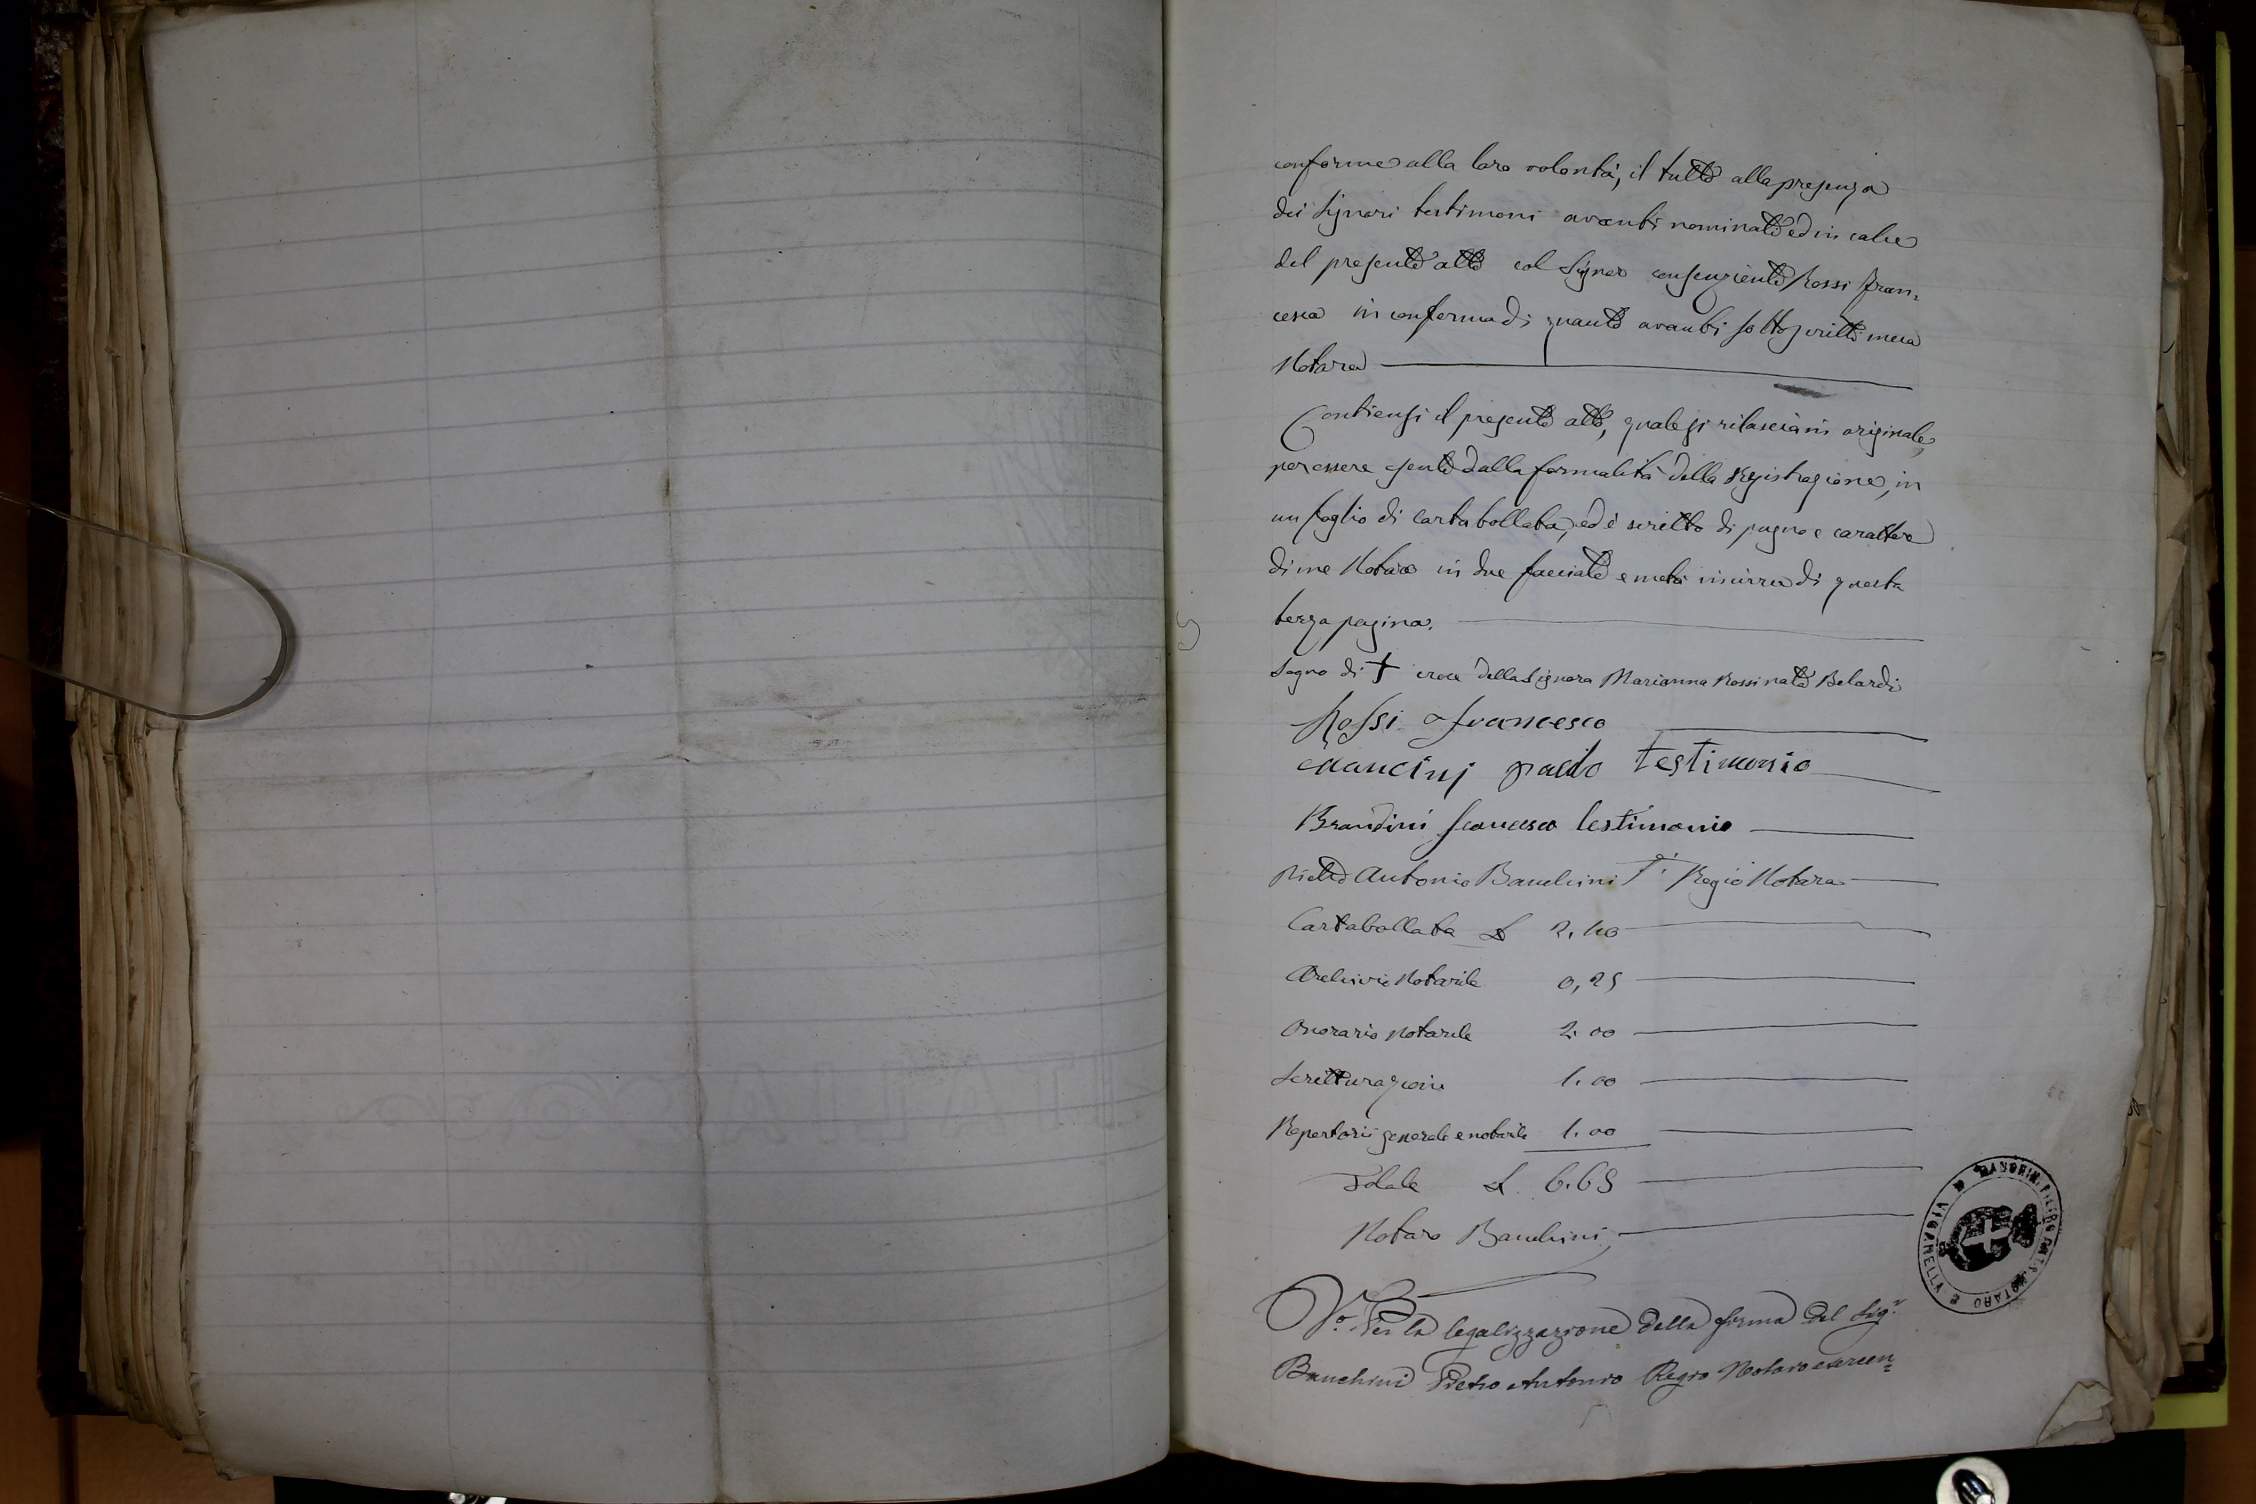 conforme alla loro volontà, il tutto alla presenza
dei Signori testimoni avanti nominati ed in calce
del presente atto col Signor consenziente Rossi Fran=
cesco in conferma di quanto avanti sottoscritti meco
Notaro
Contiensi il presente atto, quale si rilascia in originale,
per essere esente dalla formalità della Registrazione, in
un foglio di carta bollata, ed è scritto di pugno e carattere
di me Notaro in due facciate e metà incirca di questa
terza pagina.
Segno di + croce della Signora Marianna Rossi nata Belardi
Rossi Francesco
Mancini Paolo testimonio
Brandini Francesco testimonio
Pietro Antonio Banchini Regio Notaro
Carta bollata £ 2.40
Archivio Notarile 0,25
Onorario notarile 2.00
Scritturazione 1.00
Repertorii generale e notarile 1.00
Totale £ 6.65
Notaro Banchini
V.° Per la legalizzazione della firma del Sig.r
Banchini Pietro Antonio Regio Notaro esercen=
BANCHINI PIETRO ANT. NOTARO VIGANELLA